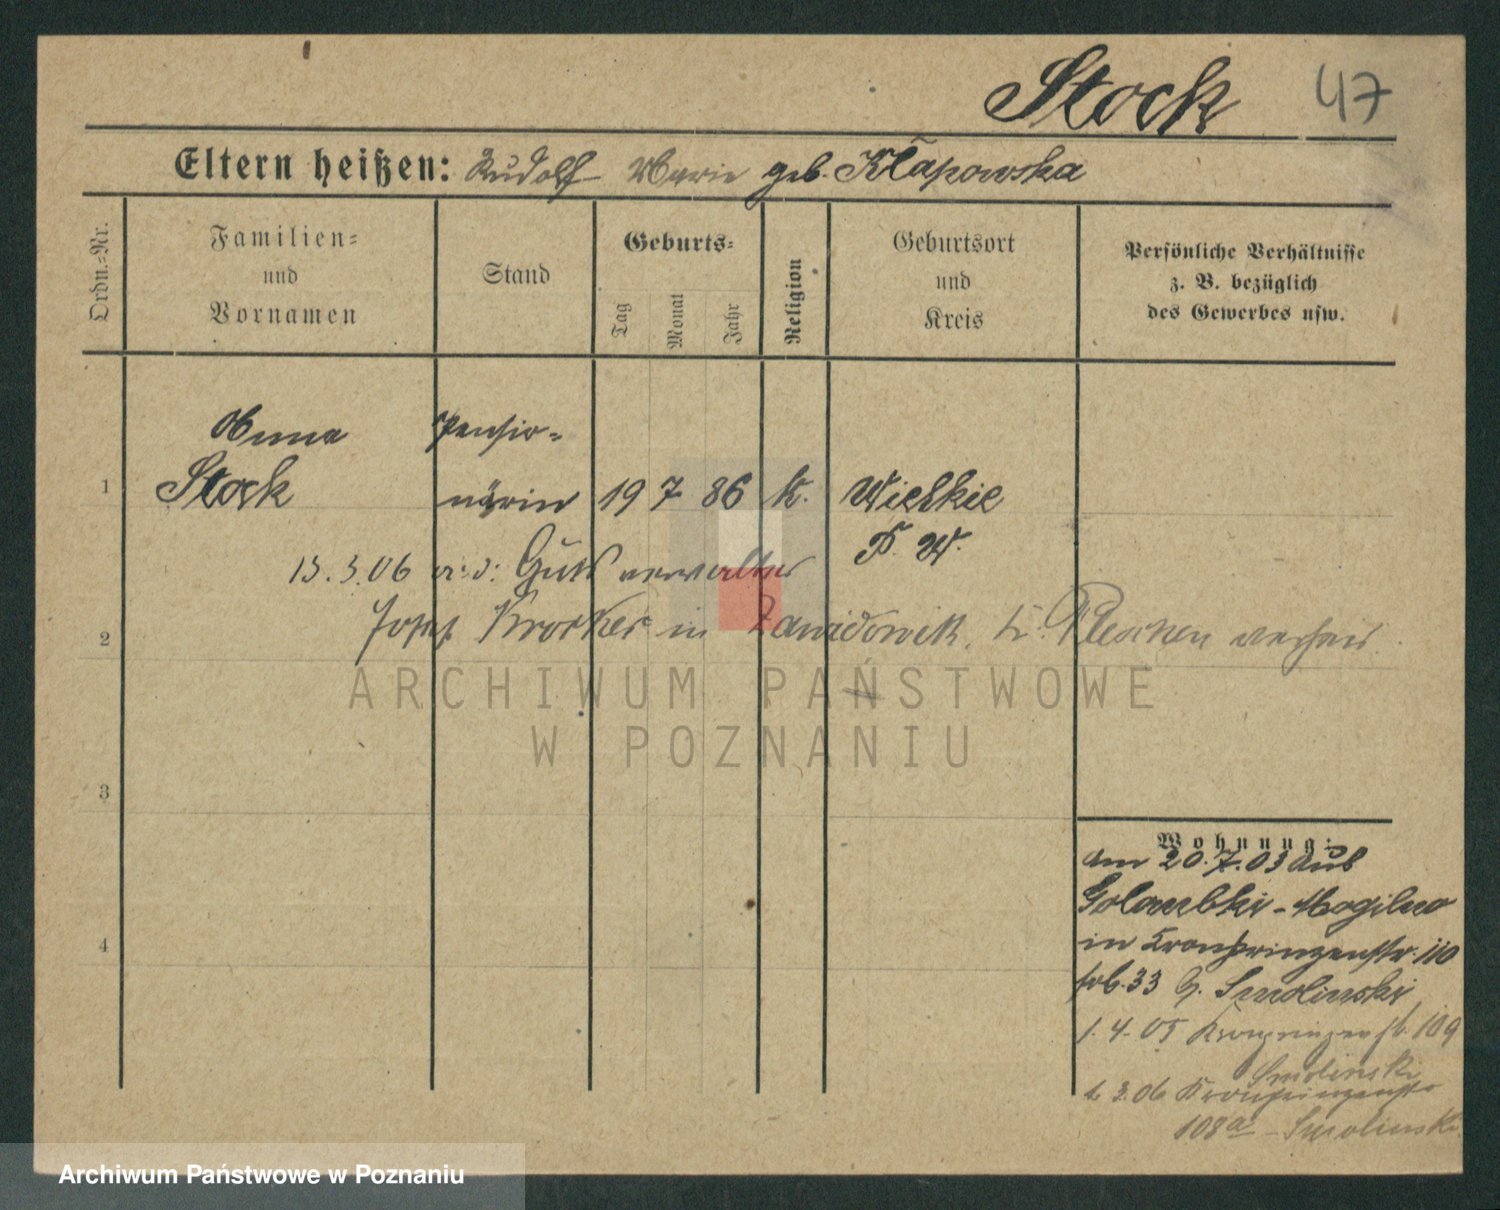 Stock 47
Eltern heißen: Rudolf Marie geb. Kłapowska
Ordn.-Nr.
Familien-
und
Vornamen
Stand
Geburts-
Tag
Monat
Jahr
Religion
Geburtsort
und
Kreis
Persönliche Verhältnisse
z. B. bezüglich
des Gewerbes usw.
Anna Pensio-
1 Stock närin 19 7 86 K. Wielkie
15.3.06 Guts verwalter
2 Josef in Zawidowitz, Kr. Pleschen
3
4
Wohnung:
am 20.7.03 aus
Golombki-Mogilno
in Kronprinzenstr. 110
33 b. Smolinski
1.4.05 Kronprinzenstr. 109
Smolinski
3.06 Kronprinzenstr
108a - Smolinski
ARCHIWUM PAŃSTWOWE
W POZNANIU
Archiwum Państwowe w Poznaniu